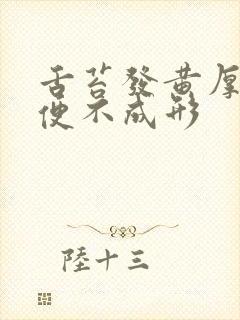 舌苔發黃厚
便不成形
陸十三